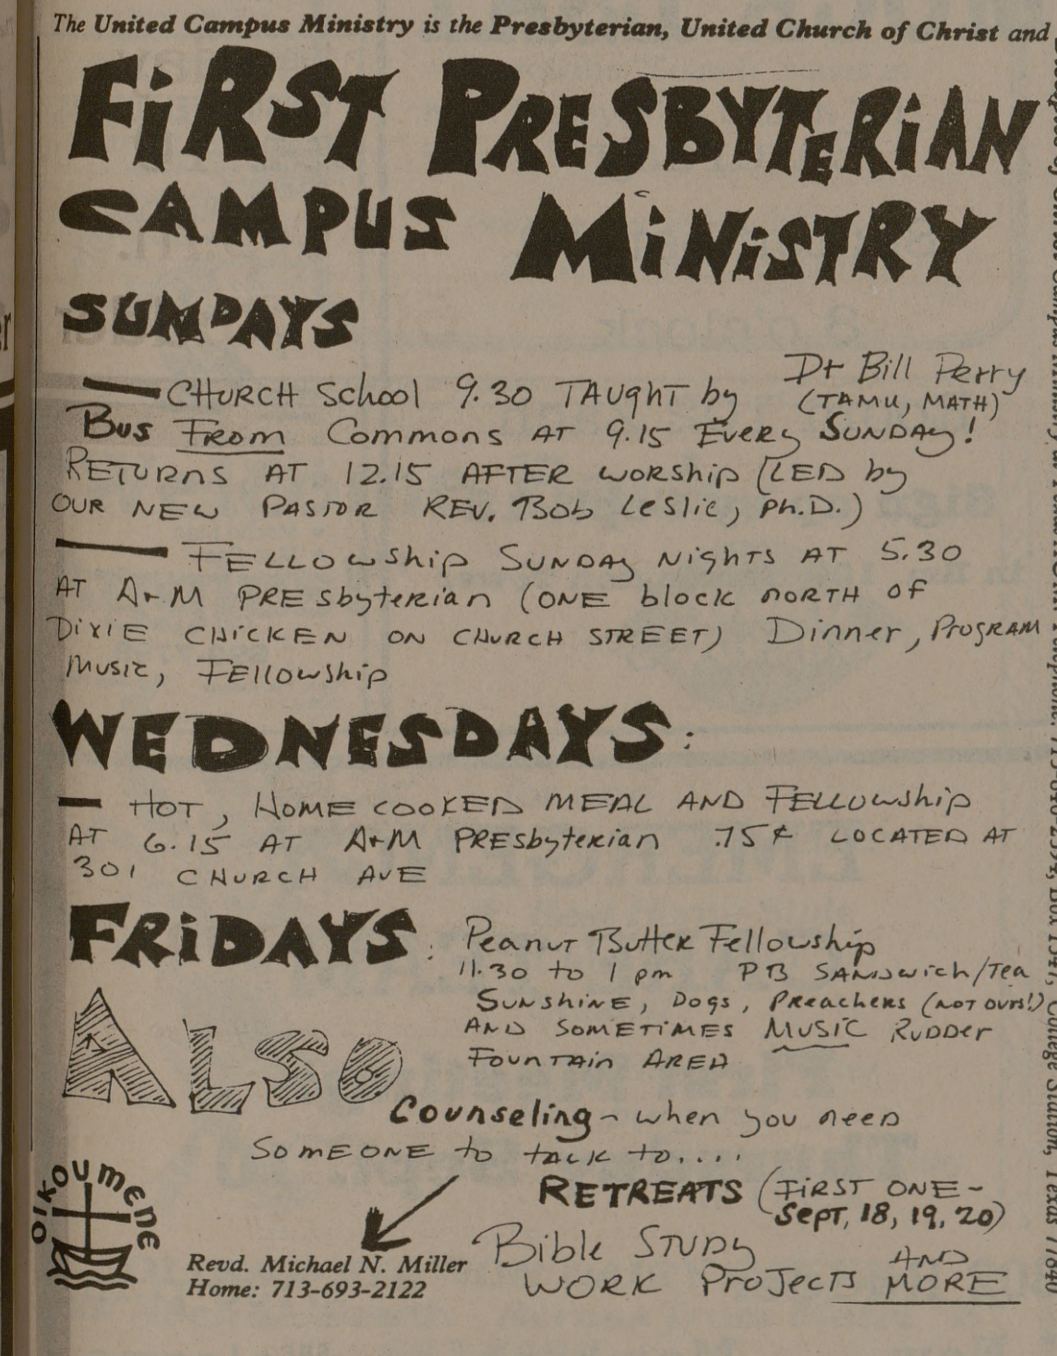 The United Campus Ministry is the Presbyterian, United Church of Christ and
FiRST PRESBYTERiAN
CAMPUS MiNiSTRY
SUNDAYS
— CHURCH School 9.30 TAUghT by Dr Bill Perry
(TAMU, MATH)
Bus From Commons AT 9.15 Every SUNDAy!
RETURNS AT 12.15 AFTER WORShip (LED by
OUR NEW PASTOR REV. Bob Leslie, Ph.D.)
— FELLOWship SUNDAy NighTS AT 5.30
AT A+M PRESbyterian (ONE block NORTH OF
DixiE CHiCKEN ON CHURCH STREET) Dinner, PROgRAM
Music, FEllowship
WEDNESDAYS:
— HOT, HOME COOKED MEAL AND FELLOWship
AT 6.15 AT A+M PRESbyterian .75¢ LOCATED AT
301 CHURCH AVE
FRiDAYS: Peanut Butter Fellowship
11.30 to 1 pm PB SANDwich/Tea
SUNShiNE, Dogs, PREAcheRs (NOT OURS!)
AND SOMETIMES MUSIC RUDDER
FOUNTAin AREA
ALSO
Counseling - when you need
SOMEONE to talk to....
RETREATS (FiRST ONE -
Sept, 18, 19, 20)
Oikoumene
Revd. Michael N. Miller
Home: 713-693-2122
Bible STUDy
WORK PROJECTS AND MORE
College Station, Texas 77840